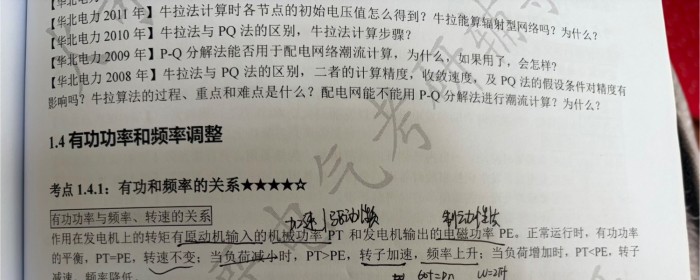 【华北电力 2011 年】牛拉法计算时各节点的初始电压值怎么得到?牛拉能算辐射型网络吗?为什么?
【华北电力 2010 年】牛拉法与 PQ 法的区别,牛拉法计算步骤?
【华北电力 2009 年】P-Q 分解法能否用于配电网络潮流计算,为什么,如果用了,会怎样?
【华北电力 2008 年】牛拉法与 PQ 法的区别,二者的计算精度,收敛速度,及 PQ 法的假设条件对精度有
影响吗?牛拉算法的过程、重点和难点是什么?配电网能不能用 P-Q 分解法进行潮流计算?为什么?
1.4 有功功率和频率调整
考点 1.4.1:有功和频率的关系★★★★☆
加速 驱动性质 制动性质
有功功率与频率、转速的关系
作用在发电机上的转矩有原动机输入的机械功率 PT 和发电机输出的电磁功率 PE。正常运行时,有功功率
的平衡,PT=PE,转速不变;当负荷减小时,PT>PE,转子加速,频率上升;当负荷增加时,PT<PE,转子
减速,频率降低。